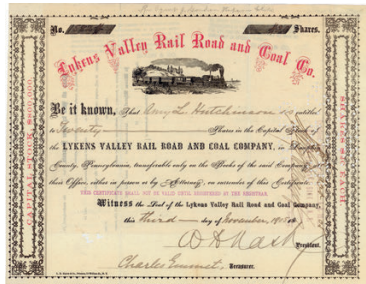 No.
Shares.
Lykens Valley Rail Road and Coal Co.
Be it known, That Amy L. Hutchinson is entitled
to Seventy Shares in the Capital Stock of
the LYKENS VALLEY RAIL ROAD AND COAL COMPANY, in Dauphin
County, Pennsylvania, transferable only on the Books of the said Company at
their Office, either in person or by Attorney, on surrender of this Certificate.
THIS CERTIFICATE SHALL NOT BE VALID UNTIL REGISTERED BY THE REGISTRAR
Witness the Seal of the Lykens Valley Rail Road and Coal Company,
this Third day of November
President.
Charles Emmet, Treasurer.
CAPITAL STOCK $600,000.
SHARES $20 EACH